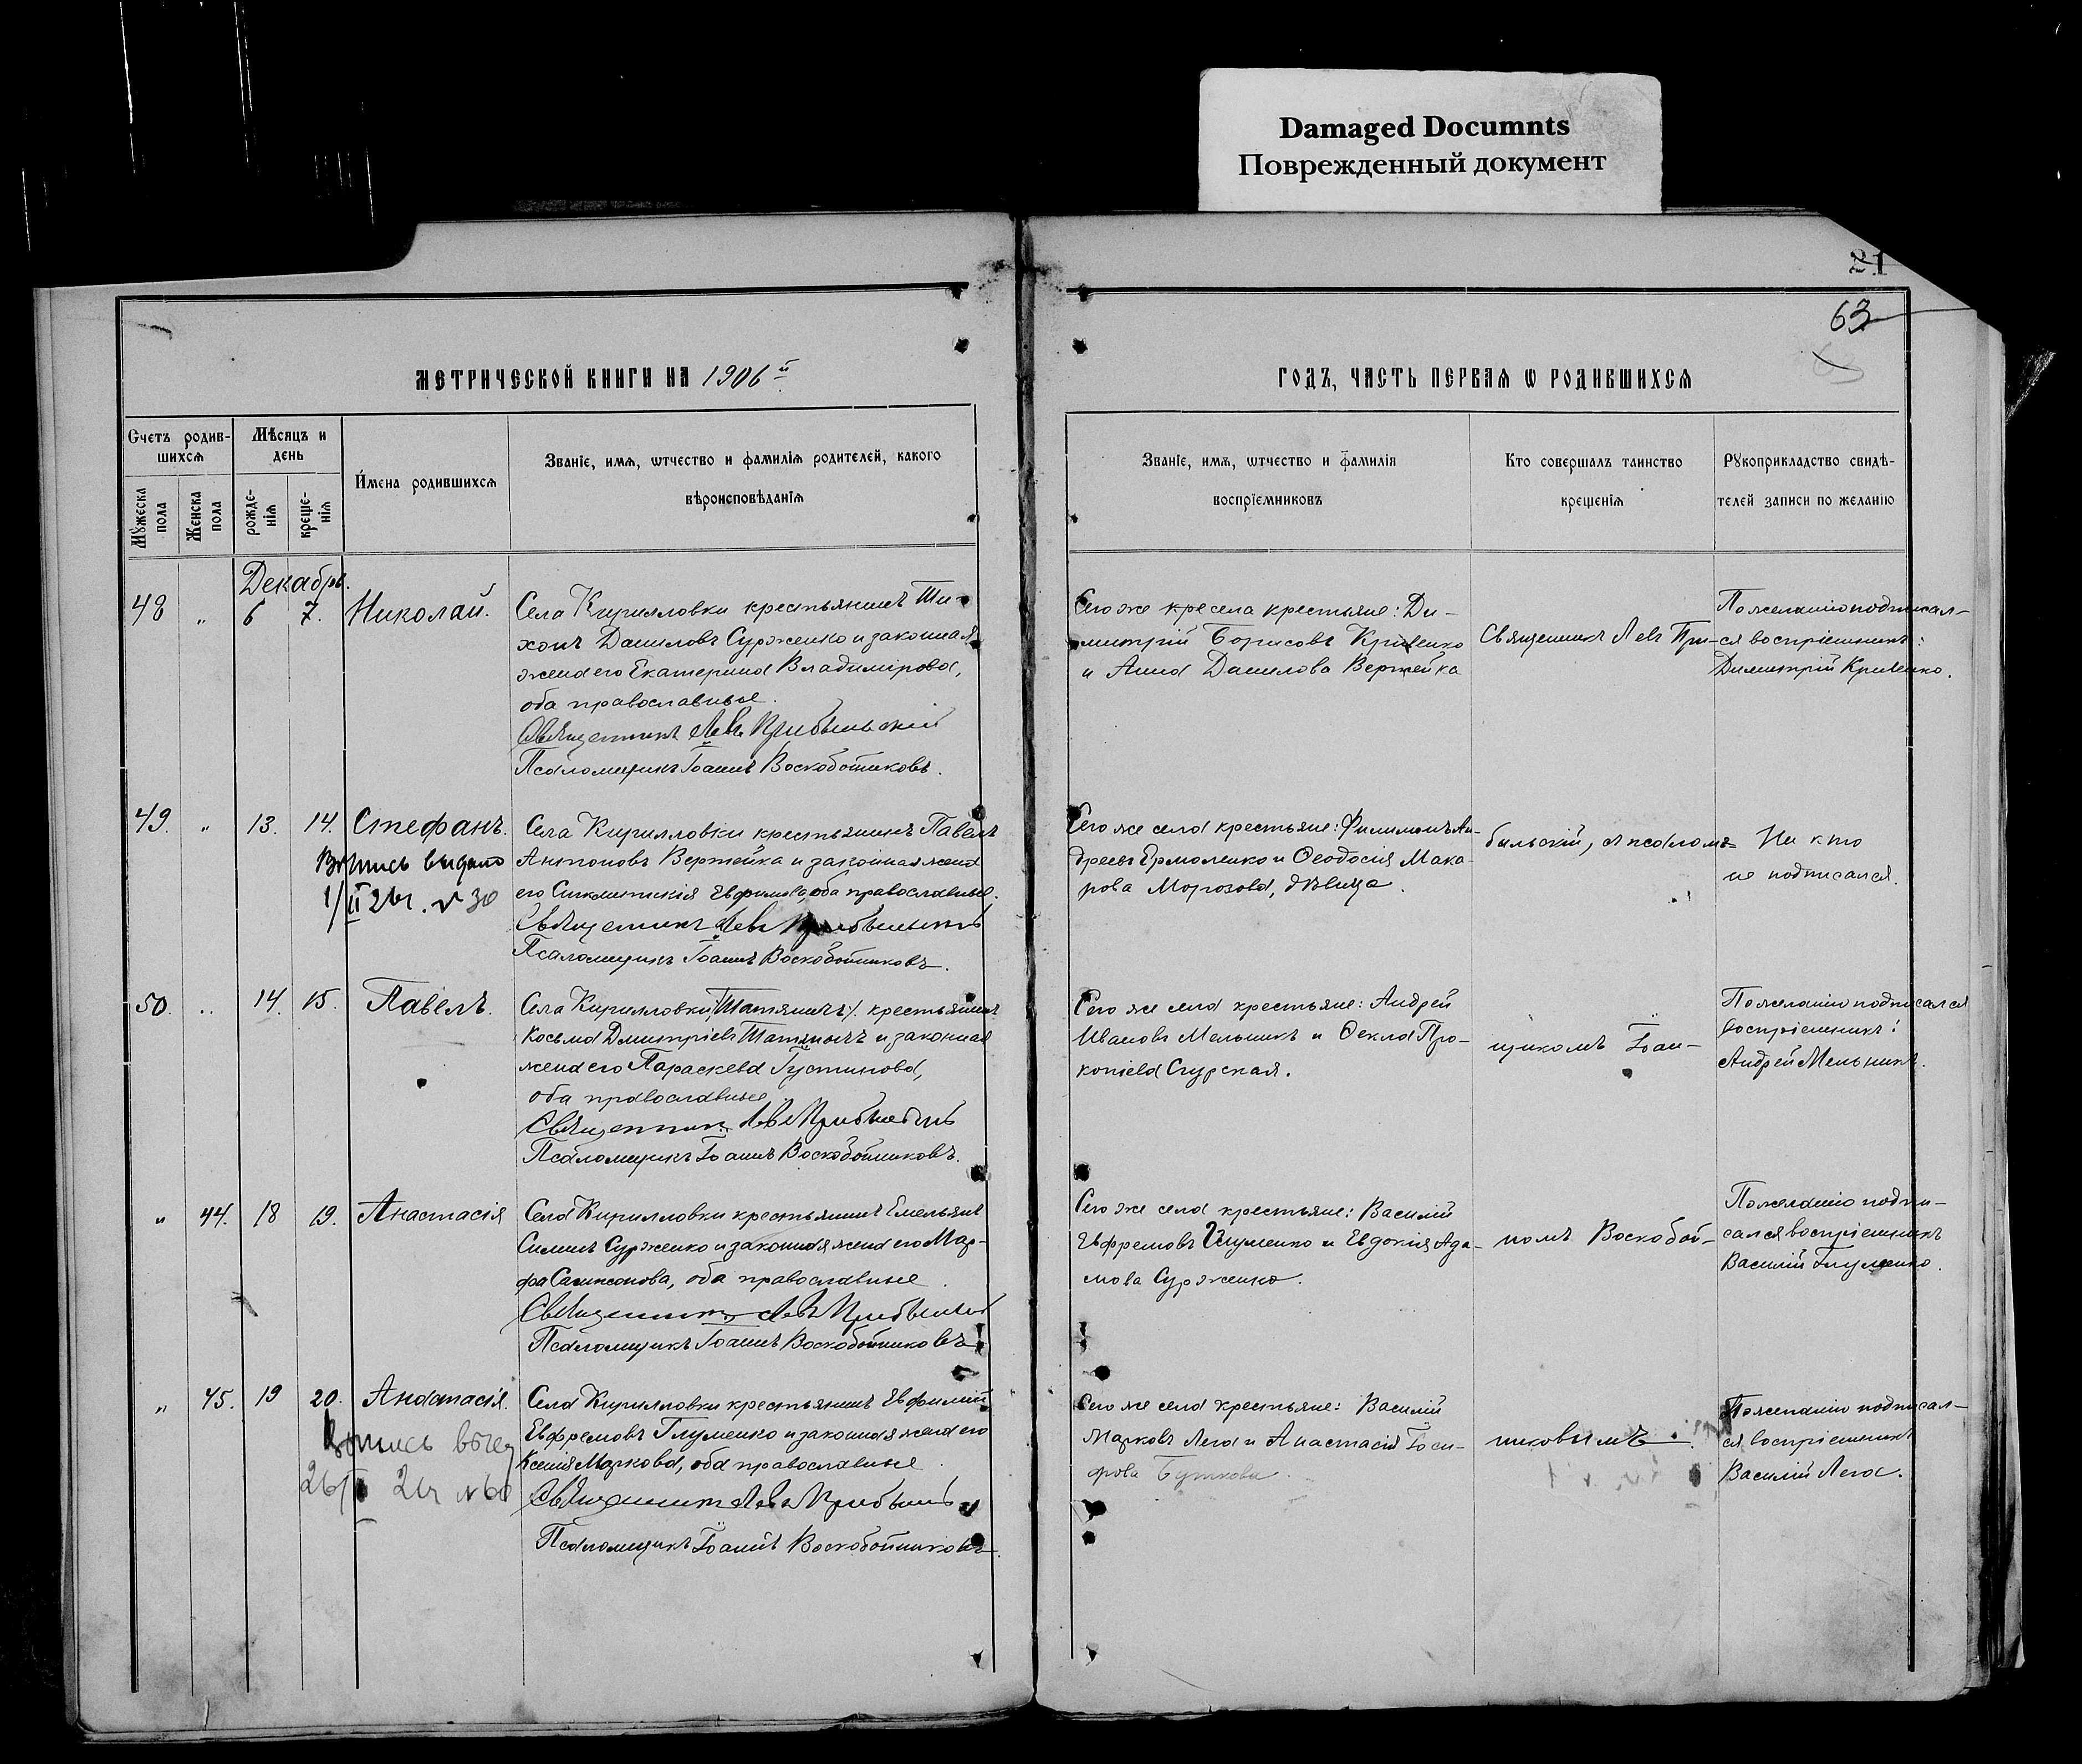 Damaged Documnts
Поврежденный документ
21
63
МЕТРИЧЕСКОЙ КНИГИ НА 1906й
ГОДЪ, ЧАСТЬ ПЕРВАЯ Ѡ РОДИВШИХСЯ
Счетъ родив-
шихся
Мѣсяцъ и
день
Мужеска
пола
Женска
пола
рожде-
нія
креще-
нія
Имена родившихся
Званіе, имя, ѡтчество и фамилія родителей, какого
вѣроисповѣданія
Званіе, имя, ѡтчество и фамилія
воспріемниковъ
Кто совершалъ таинство
крещенія
Рукоприкладство свидѣ-
телей записи по желанію
Декабрь.
48 " 6 7. Николай.
Села Кирилловки крестьянинъ Ти-
хонъ Даниловъ Сурженко и законная
жена его Екатерина Владимірова,
оба православные.
Священникъ Левъ Прибыльскій
Псаломщикъ Іоаннъ Воскобойниковъ.
Сего же села крестьяне: Ди-
митрій Борисовъ Кривенко
и Анна Данилова Вертейка
Священникъ Левъ При-
По желанію подписал-
ся воспріемникъ:
Димитрій Кривенко.
49. " 13. 14. Стефанъ.
Выпись выдана
1/II 26г. № 30
Села Кирилловки крестьянинъ Павелъ
Антоновъ Вертейка и законная жена
его Синклитикія Евфимова, оба православные.
Священникъ Левъ
Псаломщикъ Іоаннъ Воскобойниковъ.
Сего же села крестьяне: Филимонъ Ан-
дреевъ Ермоленко и Ѳеодосія Мака-
рова Морозова, дѣвица.
быльскій, съ псалом-
Ни кто
не подписался.
50. " 14. 15. Павелъ.
Села Кирилловки /:Татянычъ:/ крестьянинъ
Косьма Дмитріевъ Татянычъ и законная
жена его Параскева Іустинова,
оба православные
Священникъ Левъ
Псаломщикъ Іоаннъ Воскобойниковъ.
Сего же села крестьяне: Андрей
Ивановъ Мельникъ и Ѳекла Про-
копіева Сгурская.
щикомъ Іоан-
По желанію подписался
воспріемникъ:
Андрей Мельникъ.
" 44. 18 19. Анастасія
Села Кирилловки крестьянинъ Емельянъ
Симинъ Сурженко и законная жена его Мар-
фа Сампсонова, оба православные.
Священникъ Левъ
Псаломщикъ Іоаннъ Воскобойниковъ.
Сего же села крестьяне: Василій
Евфремовъ Глуменко и Евдокія Ада-
мова Сурженко.
номъ Воскобой-
По желанію подпи-
сался воспріемникъ
Василій Глуменко.
" 45. 19 20. Анастасія.
Села Кирилловки крестьянинъ Евфимій
Евфремовъ Глуменко и законная жена его
Ксенія Маркова, оба православные.
Священникъ Левъ
Псаломщикъ Іоаннъ Воскобойниковъ.
Сего же села крестьяне: Василій
Марковъ Лега и Анастасія Іоси-
фова Буткова.
никовымъ.
По желанію подписал-
ся воспріемникъ
Василій Лега.